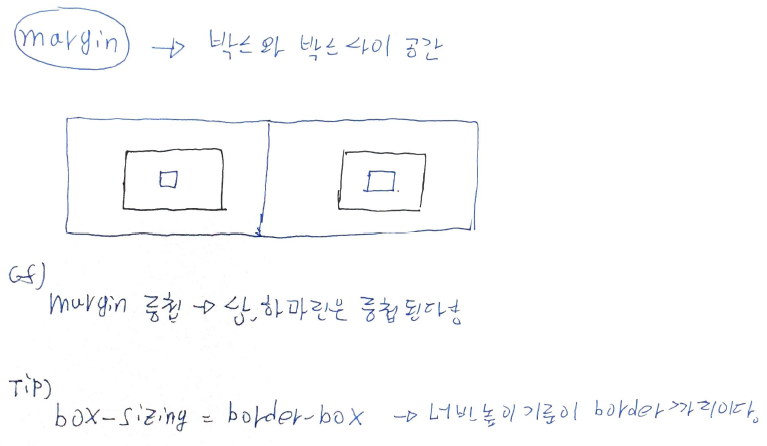 margin → 박스와 박스 사이 공간
Cf)
margin 중첩 → 상, 하 마진은 중첩된다.
Tip)
box-sizing = border-box → 너비 높이 기준이 border까지이다.